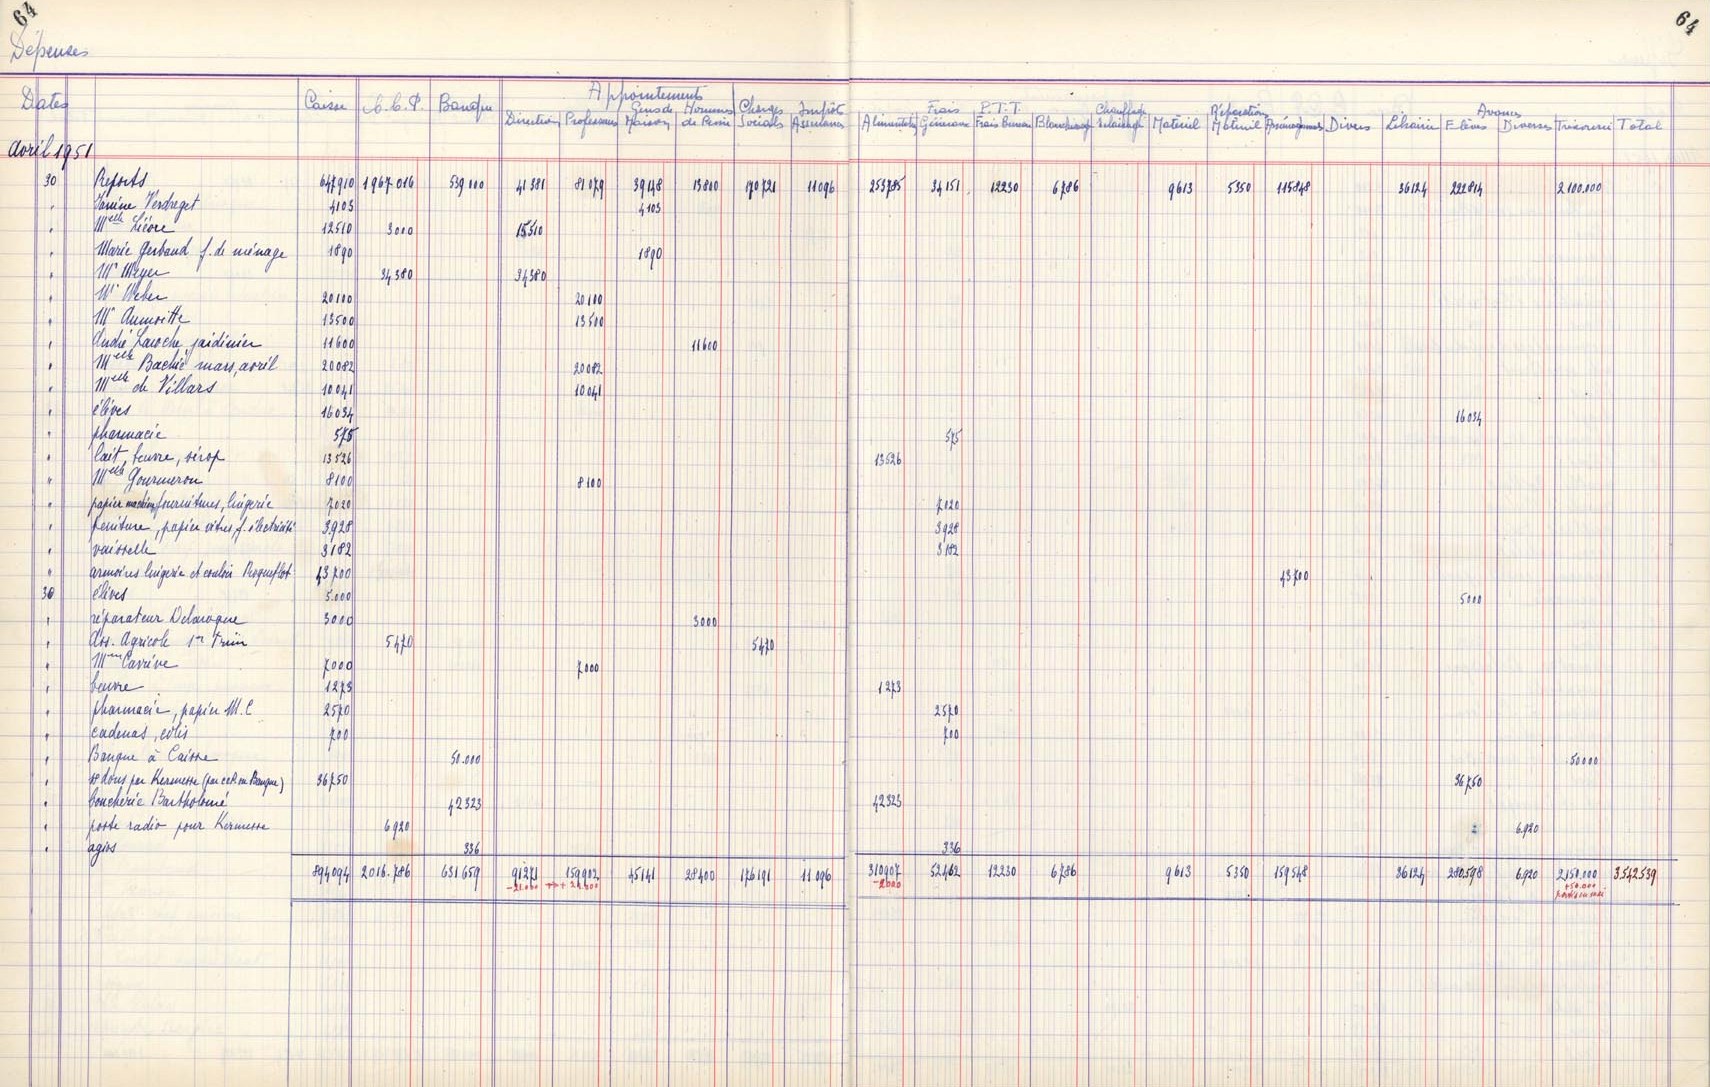 64
64
Dépenses
Dates Caisse C.C.P. Banque Appointements Direction Professeurs Gens de Maison Hommes de Peine Charges Sociales Impôts Assurances Alimentation Frais Généraux P.T.T. Frais Bureau Blanchissage Chauffage éclairage Matériel Réparation Matériel Aménagements Divers Librairie Avances Elèves Diverses Trésorerie Total
Avril 1951
30 Reports 647910 1967.016 539.000 41381 81079 39148 13800 170721 11096 253785 34151 12230 6786 9613 5350 115848 36124 222814 2.100.000
" Janine Verdreget 4103 4103
" Melle Lièvre 12510 3000 15510
" Marie Gerbaud f. de ménage 1890 1890
" Mr Meyer 34380 34380
" Mr Weber 20100 20100
" Mr Aumoitte 13500 13500
" André Laroche, jardinier 11600 11600
" Melle Bachié mars, avril 20082 20082
" Melle de Villars 10041 10041
" élèves 16034 16034
" pharmacie 575 575
" lait, beurre, sirop 13526 13526
" Melle Gourmerou 8100 8100
" papier machine, fournitures, lingerie 7020 7020
" peinture, papier vitres, f. électricité 3928 3928
" vaisselle 3182 3182
" armoires lingerie et couloir Roqueflot 43700 43700
30 élèves 5.000 5000
" réparateur Delaroque 3000 3000
" Ass. Agricole 1er Trim 5470 5470
" Mme Carrève 7000 7000
" beurre 1273 1273
" pharmacie, papier M.C 2570 2570
" cadenas, colis 700 700
" Banque à Caisse 50.000 50000
" dons par Kermesse (par en Banque) 36750 36750
" boucherie Bartholomé 42323 42323
" poste radio pour Kermesse 6920 6.920
" agios 336 336
894094 2016.786 631659 91271 159902 45141 28400 176191 11.096 310907 52462 12230 6786 9613 5350 159548 36124 280598 6.920 2.150.000 3.542539
-21.000 + 21.000 -2000 +50.000